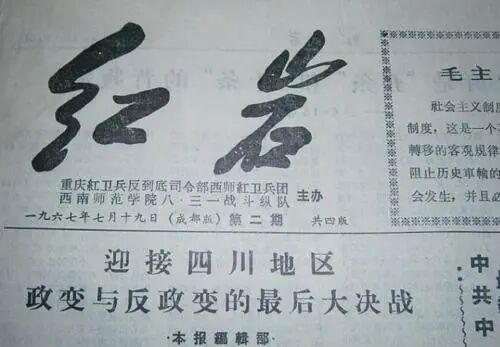 红岩
重庆紅卫兵反到底司令部西师紅卫兵团
西南师范学院八·三一战斗纵队 主办
一九六七年七月十九日（成都版）第二期 共四版
迎接四川地区
政变与反政变的最后大决战
·本报編輯部·
毛主
社会主义制度
制度，这是一个不
轉移的客观规律
阻止历史車輪的
会发生，并且必
中
共
中